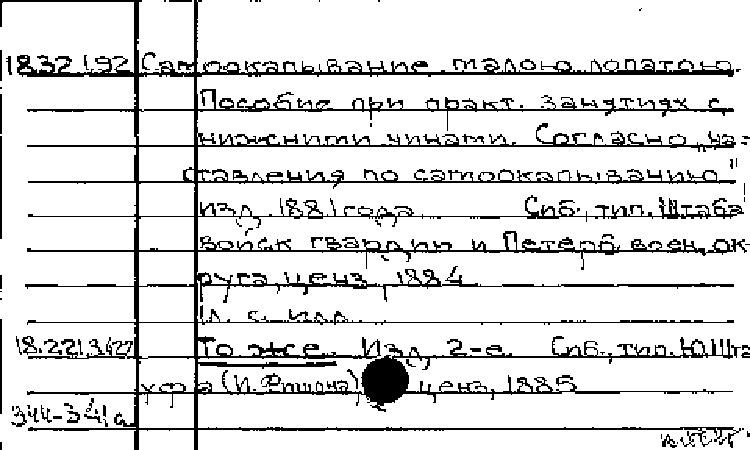 18.32.1.92 Самоокапывание малою лопатою.
Пособие при практ. занятиях с
нижними чинами. Согласно „На-
ставления по самоокапыванию"
изд. 1881 года. Спб., тип. Штаба
войск гвардии и Петерб. воен. ок-
руга, ценз. 1884.
с. илл.
18.221.3.422 То же. Изд. 2-е. Спб., тип. Ю. Шта
уфа (И. Фишона), ценз. 1885
344-341а